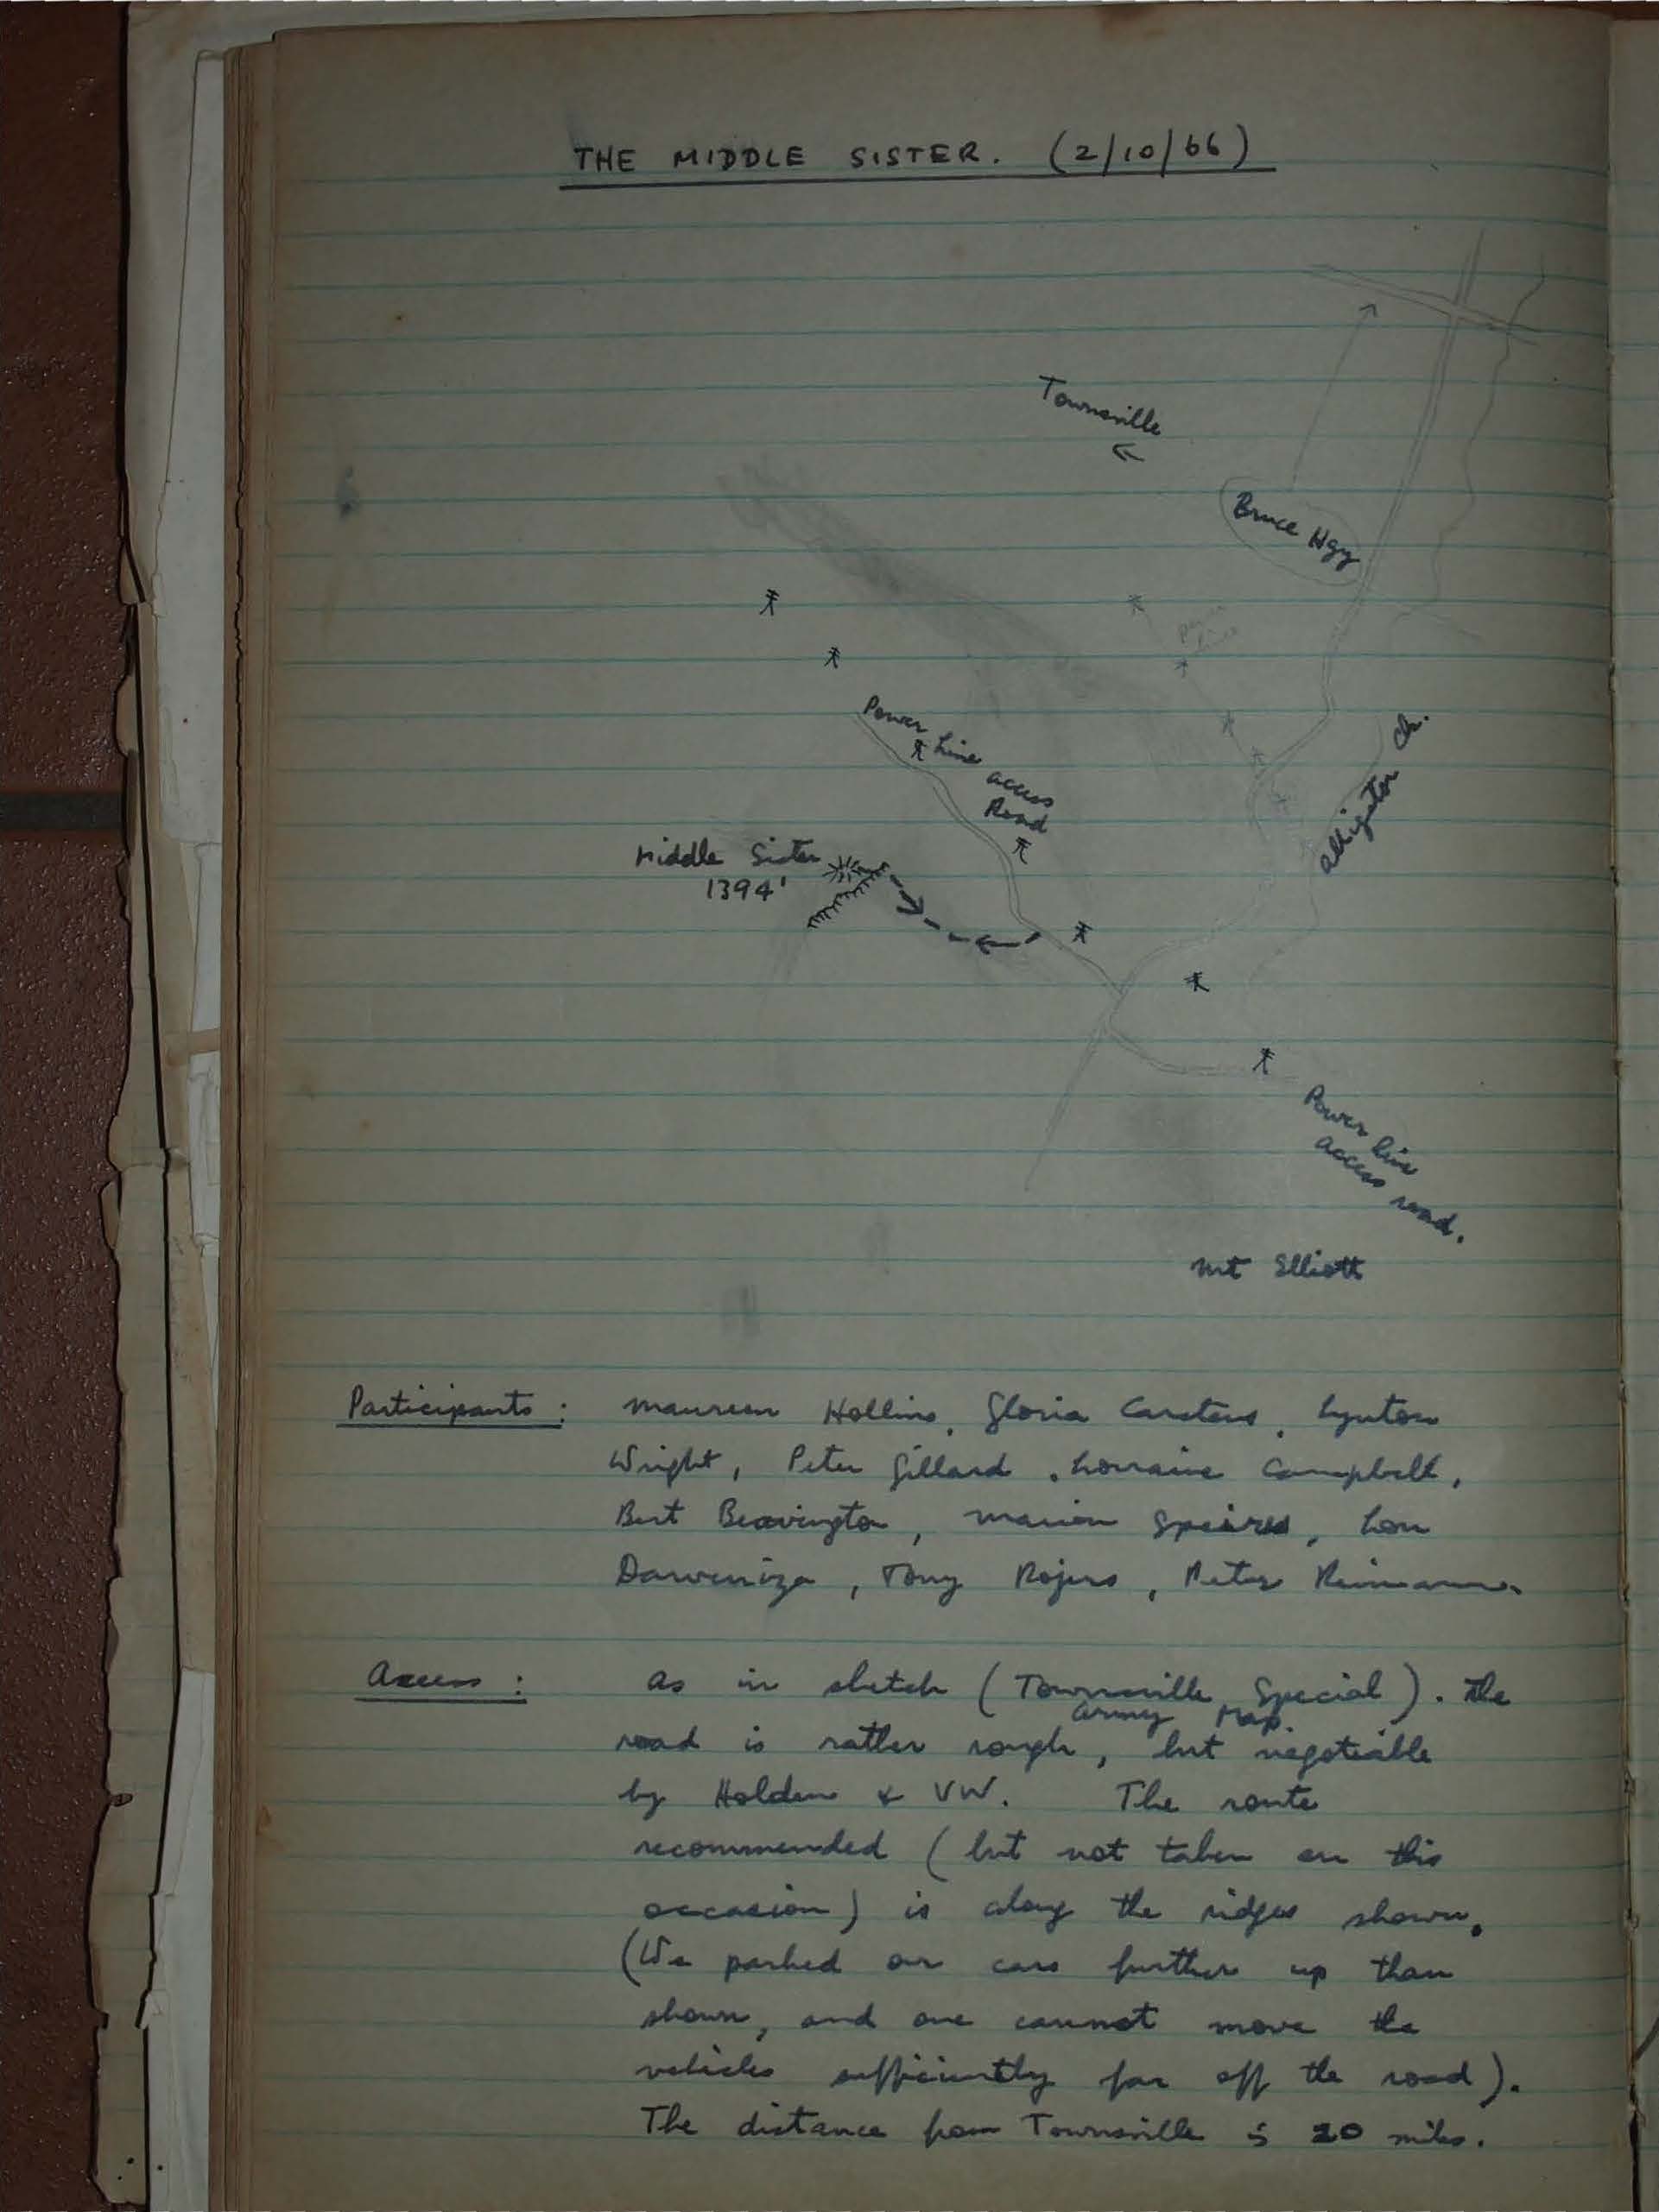 THE MIDDLE SISTER. (2/10/66)
Townsville
Bruce Hgy
Power
line
Power Line access
Road
Alligator Ck.
Middle Sister
1394'
Power line
access road.
Mt Elliott
Participants : Maureen Hollins, Gloria Carstens, Lynton
Wright, Peter Gillard, Lorraine Campbell,
Bert Beavington, Marion Speires, Lou
Darveniza, Tony Rogers, Peter Reimann.
Access : As in sketch (Townsville Special). The
Army Map.
road is rather rough, but negotiable
by Holden & VW. The route
recommended (but not taken on this
occasion) is along the ridges shown.
(We parked our cars further up than
shown, and one cannot move the
vehicles sufficiently far off the road).
The distance from Townsville is 20 miles.